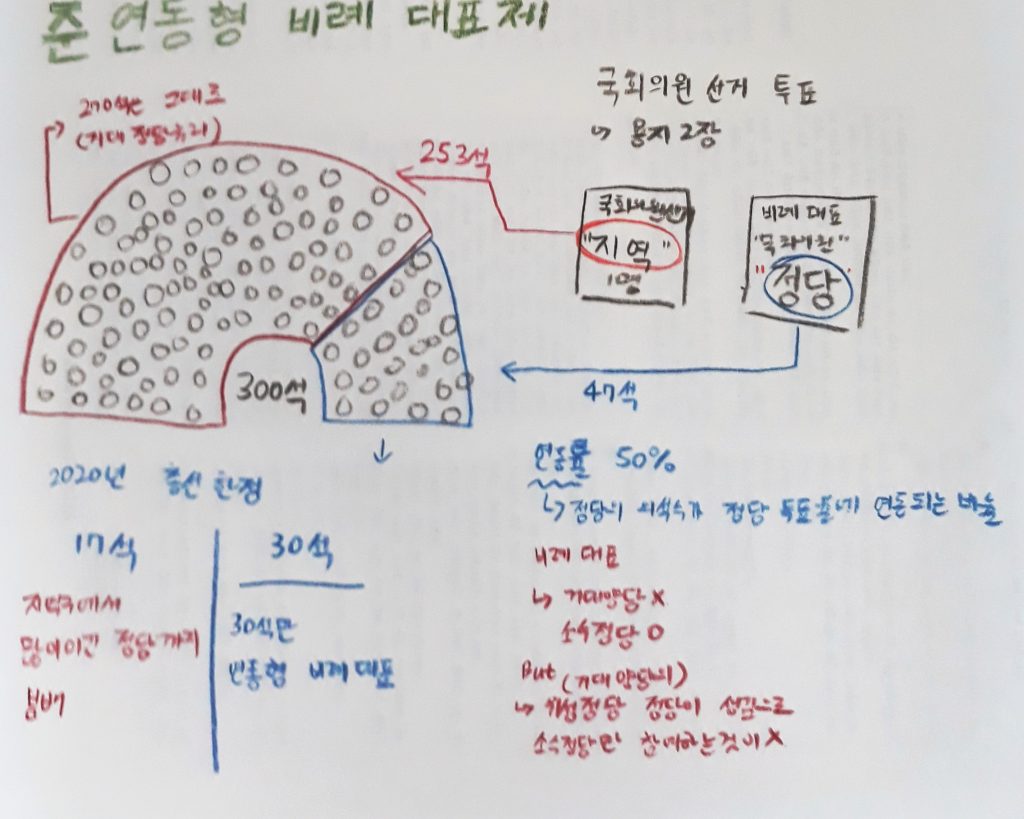 준 연동형 비례 대표제
270석은 그대로
(거대 정당유리)
253석
국회의원 선거 투표
↳ 용지 2장
국회의원선거
"지역"
1명
비례 대표
국회의원
"정당"
300석
47석
2020년 총선 한정
17석
지역구에서
많이이긴 정당까지
분배
30석
30석만
연동형 비례 대표
연동률 50%
↳ 정당의 의석수가 정당 득표율에 연동되는 비율
비례 대표
↳ 거대양당 X
소수정당 O
But (거대 양당의)
↳ 위성정당 정당이 생김으로
소수정당만 참여하는것이 X